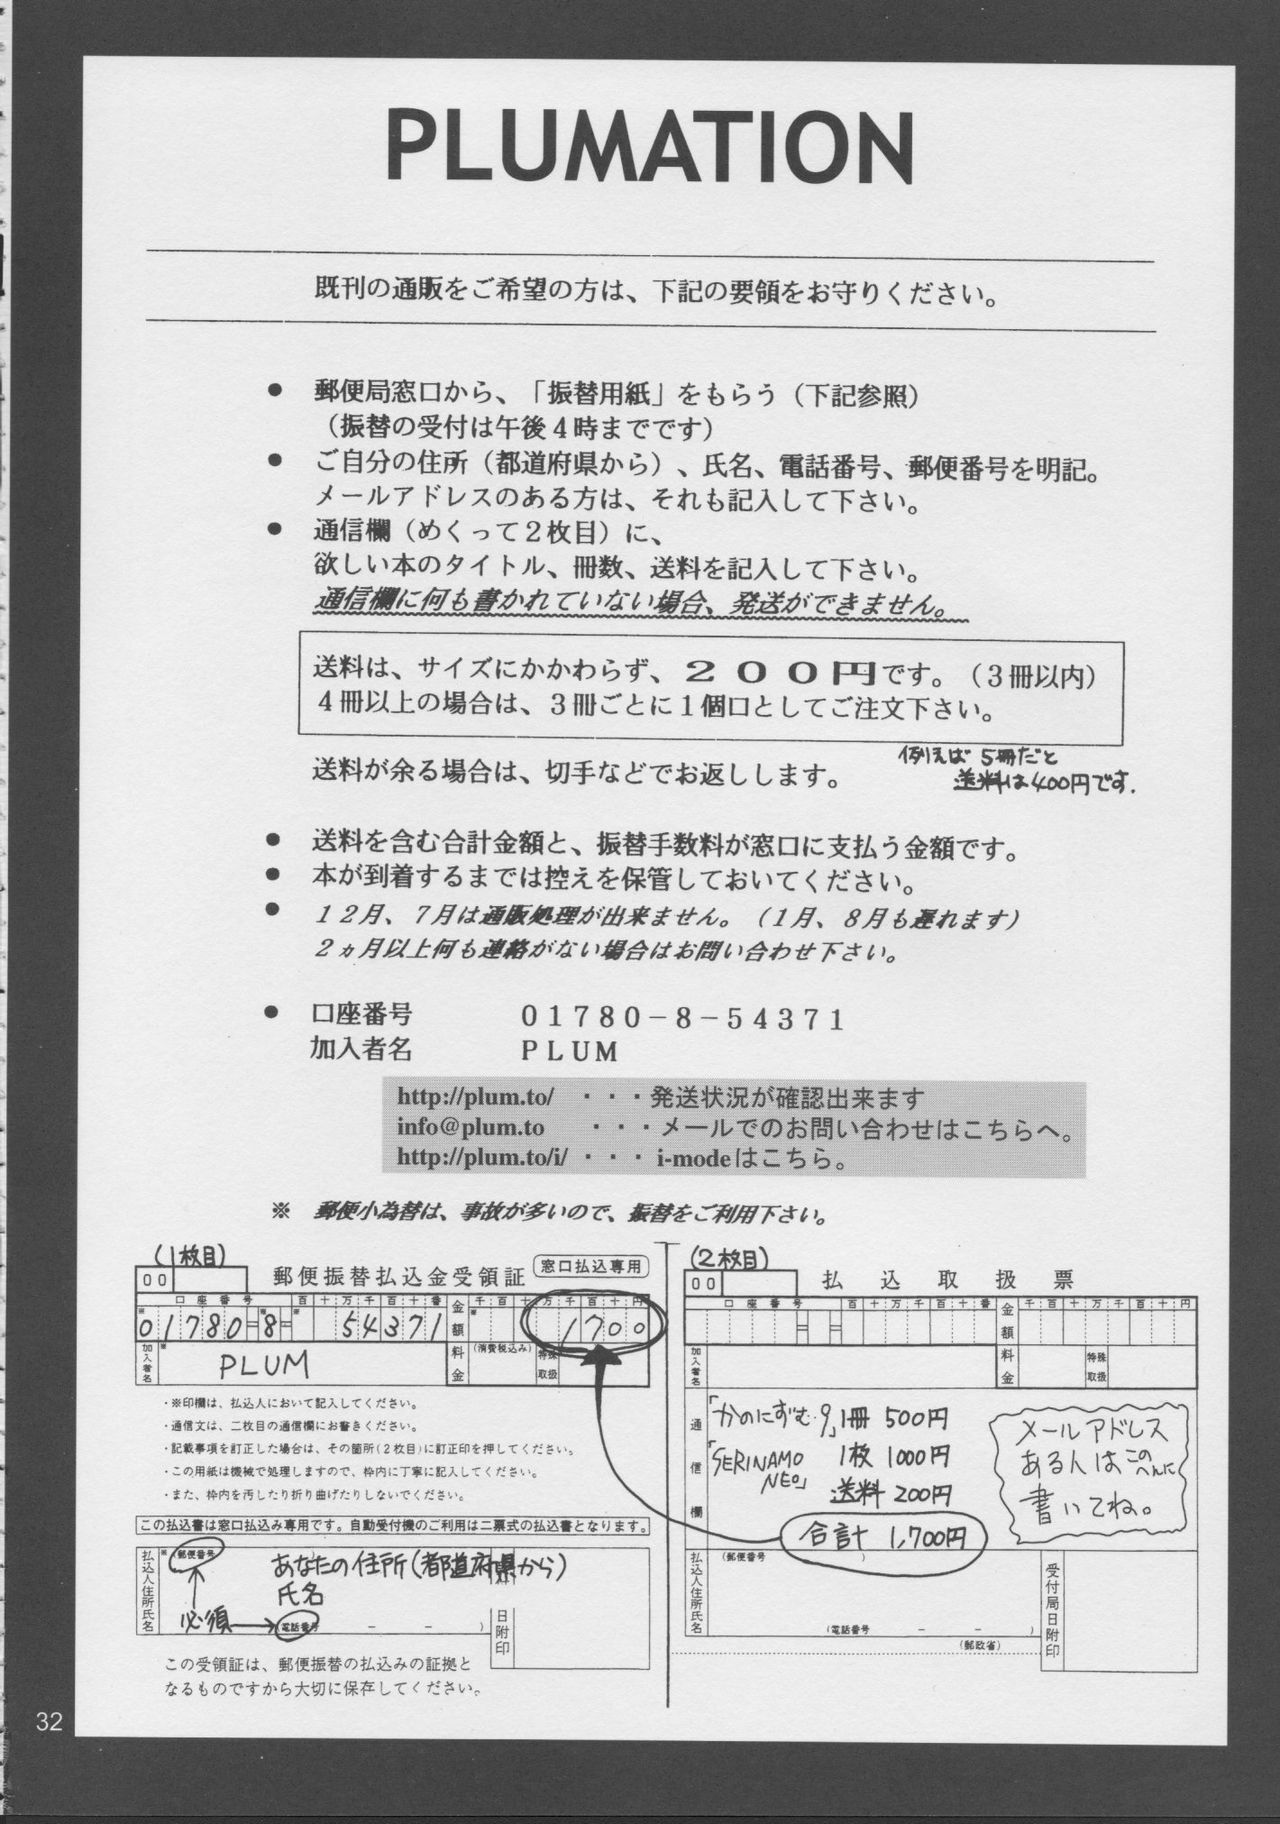 PLUMATION
既刊の通販をご希望の方は、下記の要領をお守りください。
● 郵便局窓口から、「振替用紙」をもらう（下記参照）
（振替の受付は午後４時までです）
● ご自分の住所（都道府県から）、氏名、電話番号、郵便番号を明記。
メールアドレスのある方は、それも記入して下さい。
● 通信欄（めくって２枚目）に、
欲しい本のタイトル、冊数、送料を記入して下さい。
通信欄に何も書かれていない場合、発送ができません。
送料は、サイズにかかわらず、２００円です。（３冊以内）
４冊以上の場合は、３冊ごとに１個口としてご注文下さい。
例えば 5冊だと
送料は400円です.
送料が余る場合は、切手などでお返しします。
● 送料を含む合計金額と、振替手数料が窓口に支払う金額です。
● 本が到着するまでは控えを保管しておいてください。
● １２月、７月は通販処理が出来ません。（１月、８月も遅れます）
２ヵ月以上何も連絡がない場合はお問い合わせ下さい。
● 口座番号 ０１７８０－８－５４３７１
加入者名 ＰＬＵＭ
http://plum.to/ ・・・発送状況が確認出来ます
info@plum.to ・・・メールでのお問い合わせはこちらへ。
http://plum.to/i/ ・・・ i-modeはこちら。
※ 郵便小為替は、事故が多いので、振替をご利用下さい。
(1枚目)
00
郵便振替払込金受領証
窓口払込専用
口座番号 百十万千百十番
金額
千百十万千百十円
01780=8= 54371
1700
加入者名
PLUM
料金
(消費税込み)
特殊取扱
・※印欄は、払込人において記入してください。
・通信文は、二枚目の通信欄にお書きください。
・記載事項を訂正した場合は、その箇所(２枚目)に訂正印を押してください。
・この用紙は機械で処理しますので、枠内に丁寧に記入してください。
・また、枠内を汚したり折り曲げたりしないでください。
この払込書は窓口払込み専用です。自動受付機のご利用は二票式の払込書となります。
払込人住所氏名
※
郵便番号
あなたの住所(都道府県から)
氏名
必須
電話番号 － － ）
日附印
この受領証は、郵便振替の払込みの証拠と
なるものですから大切に保存してください。
(2枚目)
00
払込取扱票
口座番号 百十万千百十番
金額
千百十万千百十円
加入者名
料金
特殊取扱
通信欄
「かのにずむ9」1冊 500円
「SERINAMO NEO」 1枚 1000円
送料 200円
合計 1,700円
メールアドレス
ある人はこのへんに
書いてね。
払込人住所氏名
（郵便番号 ）
（電話番号 － － ）
(郵政省)
受付局日附印
32